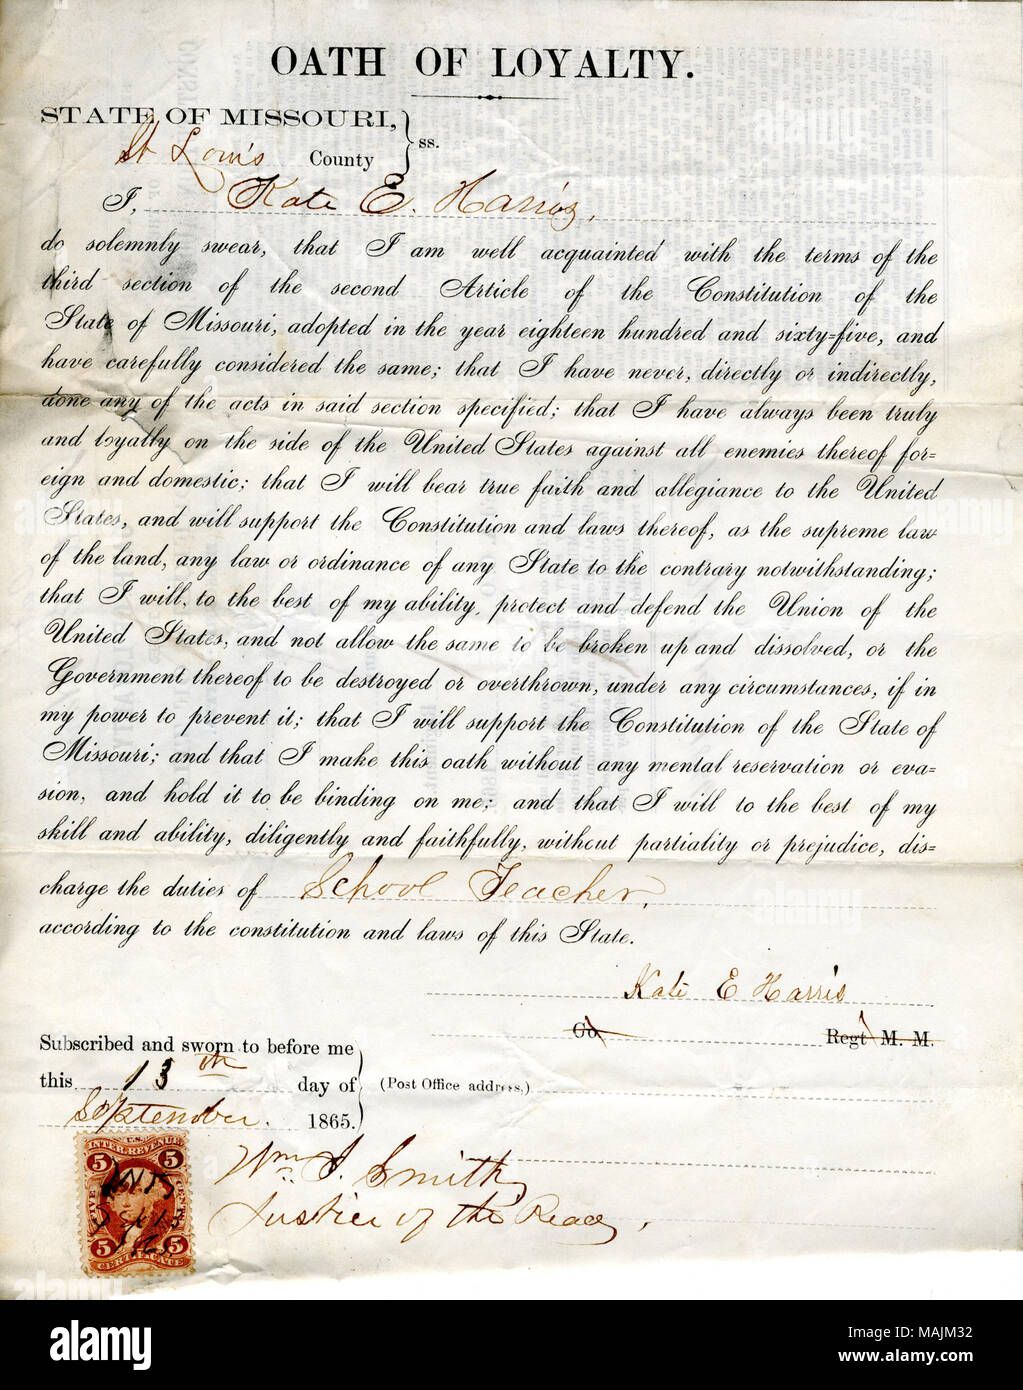 OATH OF LOYALTY.
STATE OF MISSOURI,
St Louis County } ss.
I, Kate E. Harris,
do solemnly swear, that I am well acquainted with the terms of the
third section of the second Article of the Constitution of the
State of Missouri, adopted in the year eighteen hundred and sixty-five, and
have carefully considered the same; that I have never, directly or indirectly,
done any of the acts in said section specified; that I have always been truly
and loyally on the side of the United States against all enemies thereof for=
eign and domestic; that I will bear true faith and allegiance to the United
States, and will support the Constitution and laws thereof, as the supreme law
of the land, any law or ordinance of any State to the contrary notwithstanding;
that I will, to the best of my ability, protect and defend the Union of the
United States, and not allow the same to be broken up and dissolved, or the
Government thereof to be destroyed or overthrown, under any circumstances, if in
my power to prevent it; that I will support the Constitution of the State of
Missouri; and that I make this oath without any mental reservation or eva=
sion, and hold it to be binding on me; and that I will to the best of my
skill and ability, diligently and faithfully, without partiality or prejudice, dis=
charge the duties of School Teacher,
according to the constitution and laws of this State.
Kate E Harris
Co Regt M. M.
Subscribed and sworn to before me
this 13th day of
September. 1865.
(Post Office address,)
Wm. S. Smith
Justice of the Peace,
U.S.
INTER. REVENUE
5 5
FIVE CENTS
Sept 13
1865
5 5
CERTIFICATE
alamy
Image ID: MAJM32
www.alamy.com